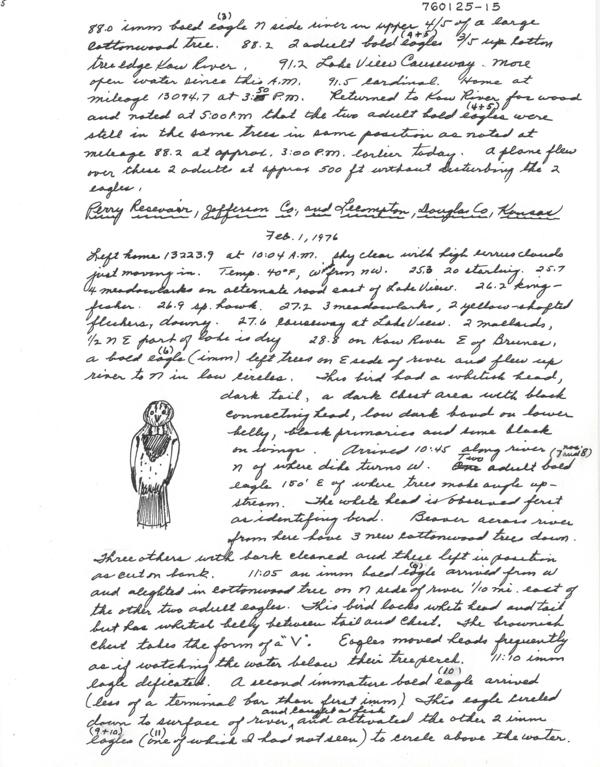 760125-15
88.0 imm bald eagle (3) N side river in upper 4/5 of a large
cottonwood tree. 88.2 2 adult bald eagles (4+5) 3/5 up cotton
tree edge Kaw River. 91.2 Lake View Causeway. more
open water since this A.M. 91.5 cardinal. Home at
mileage 13094.7 at 3:50 P.M. Returned to Kaw River for wood
and noted at 5:00 P.M that the two adult bald eagles (4+5) were
still in the same trees in same position as noted at
mileage 88.2 at approx. 3:00 P.M. earlier today. A plane flew
over these 2 adults at approx 500 ft without disturbing the 2
eagles.
Perry Resevoir, Jefferson Co, and Lecompton, Douglas Co, Kansas
Feb. 1, 1976
Left home 13223.9 at 10:04 A.M. sky clear with high cirrus clouds
just moving in. Temp. 40°F, W from NW. 25.3 20 starling. 25.7
4 meadowlarks on alternate road east of Lake View. 26.2 king-
fisher. 26.9 sp. hawk. 27.2 3 meadowlarks, 2 yellow-shafted
flickers, downy. 27.6 causeway at Lake View. 2 mallards,
1/2 N E part of lake is dry 28.8 on Kaw River E of Brunes,
a bald eagle (6) (imm) left trees on E side of river and flew up
river to N in low circles. This bird had a whitish head,
dark tail, a dark chest area with black
connecting head, low dark band on lower
belly, black primaries and some black
on wings. Arrived 10:45 along river
N of where dike turns W. Two adult bald (nos. 7 and 8)
eagle 150' E of where trees make angle up-
stream. The white head is observed first
as identifing bird. Beaver across river
from here have 3 new cottonwood trees down.
Three others with bark cleaned and these left in position
as cut on bank. 11:05 an imm bald eagle (9) arrived from W
and alighted in cottonwood tree on N side of river 1/10 mi. east of
the other two adult eagles. This bird lacks white head and tail
but has whitish belly between tail and chest. The brownish
chest takes the form of a "V". Eagles moved heads frequently
as if watching the water below their tree perch. 11:10 imm
eagle deficated. A second immature bald eagle (10) arrived
(less of a terminal bar than first imm) This eagle circled
down to surface of river, and caught a fish and activated the other 2 imm
eagles (9+10) (one (11) of which I had not seen) to circle above the water.